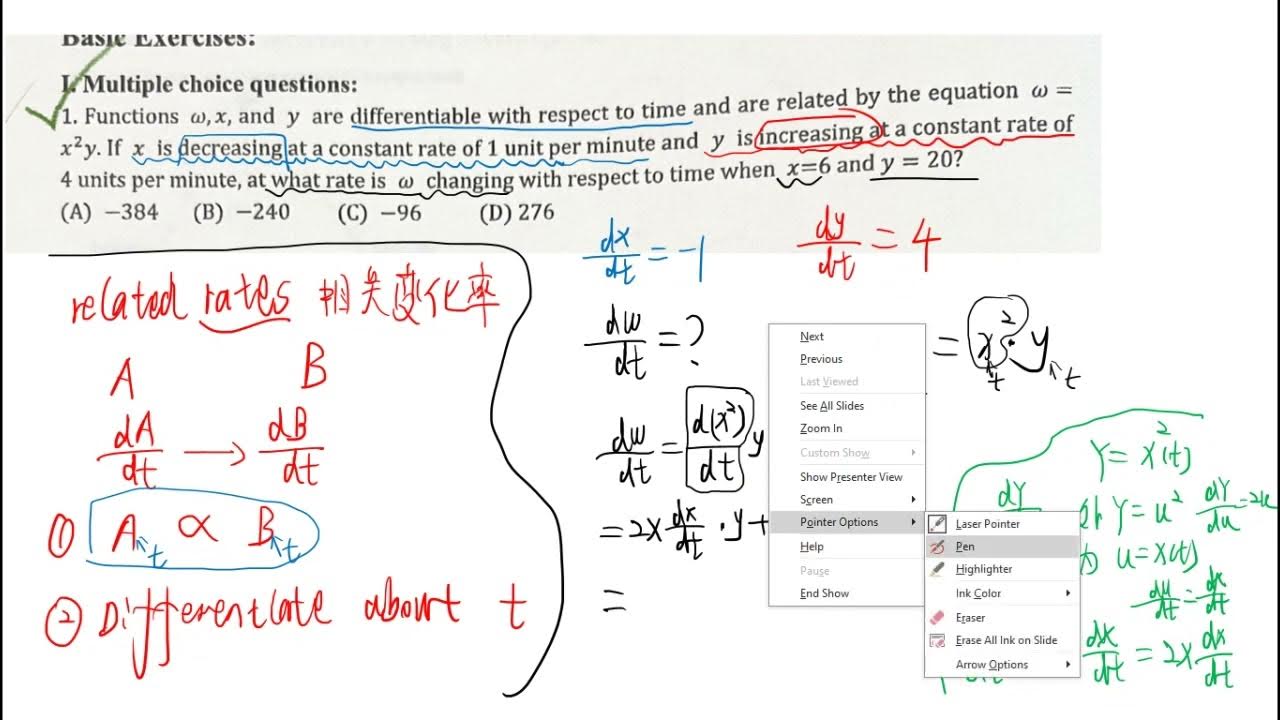 Basic Exercises:
I. Multiple choice questions:
1. Functions ω, x, and y are differentiable with respect to time and are related by the equation ω =
x²y. If x is decreasing at a constant rate of 1 unit per minute and y is increasing at a constant rate of
4 units per minute, at what rate is ω changing with respect to time when x=6 and y = 20?
(A) −384 (B) −240 (C) −96 (D) 276
related rates 相关变化率
A B
dA/dt → dB/dt
① A t ∝ B t
② Differentiate about t
dx/dt = -1 dy/dt = 4
dw/dt = ?
= x² · y
t t
dw/dt = d(x²)/dt y
= 2x dx/dt · y +
=
Y = x²(t)
dY
Y = u² dY/du = 2u
u = x(t)
du/dt = dx/dt
dx/dt = 2x dx/dt
Next
Previous
Last Viewed
See All Slides
Zoom In
Custom Show
Show Presenter View
Screen
Pointer Options
Help
Pause
End Show
Laser Pointer
Pen
Highlighter
Ink Color
Eraser
Erase All Ink on Slide
Arrow Options